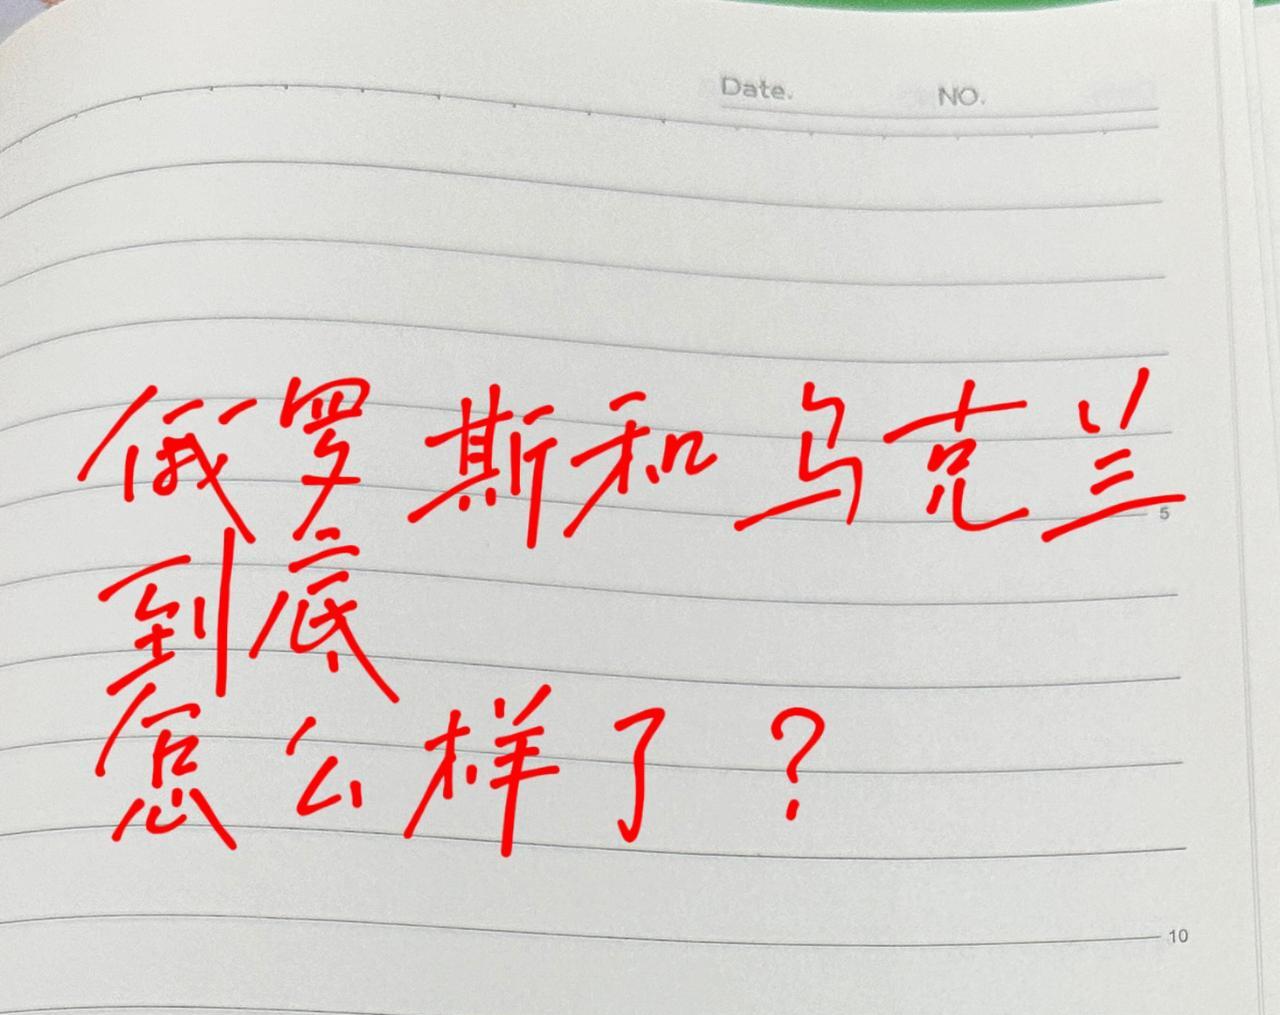 Date. NO.
俄罗斯和乌克兰
5
到底
怎么样了？
10